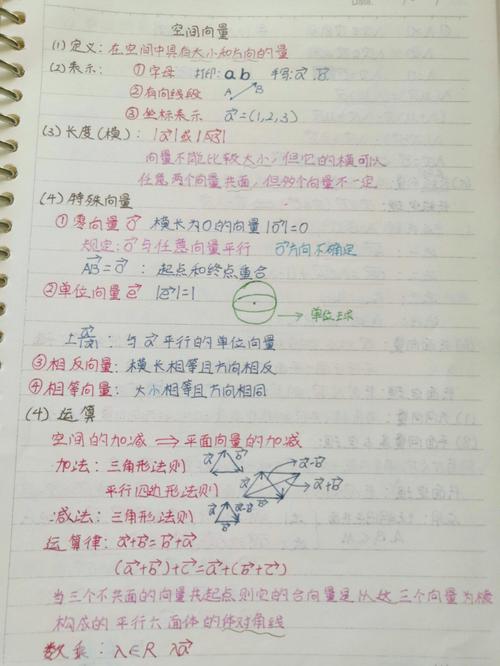 Date
空间向量
(1) 定义: 在空间中具有大小和方向的量
(2) 表示: ①字母 打印: a b 手写: a⃗ b⃗
②有向线段 A B
③坐标表示 a⃗=(1,2,3)
(3) 长度(模): |a⃗|或|AB⃗|
向量不能比较大小,但它的模可以
任意两个向量共面,但多个向量不一定
(4) 特殊向量
①零向量 0⃗ 模长为0的向量 |0⃗|=0
规定: 0⃗与任意向量平行 0⃗方向不确定
AB⃗=0⃗ : 起点和终点重合
②单位向量 e⃗ |e⃗|=1
→ 单位球
±a⃗/|a⃗| : 与a⃗平行的单位向量
③相反向量: 模长相等且方向相反
④相等向量: 大小相等且方向相同
(4) 运算
空间的加减 ⇒ 平面向量的加减
加法: 三角形法则 a⃗ b⃗ a⃗-b⃗
平行四边形法则 a⃗ b⃗ a⃗+b⃗
减法: 三角形法则 a⃗ a⃗-b⃗ b⃗
运算律: a⃗+b⃗=b⃗+a⃗
(a⃗+b⃗)+c⃗=a⃗+(b⃗+c⃗)
当三个不共面的向量共起点则它的合向量是以这三个向量为棱
构成的平行六面体的体对角线
数乘: λ∈R λa⃗